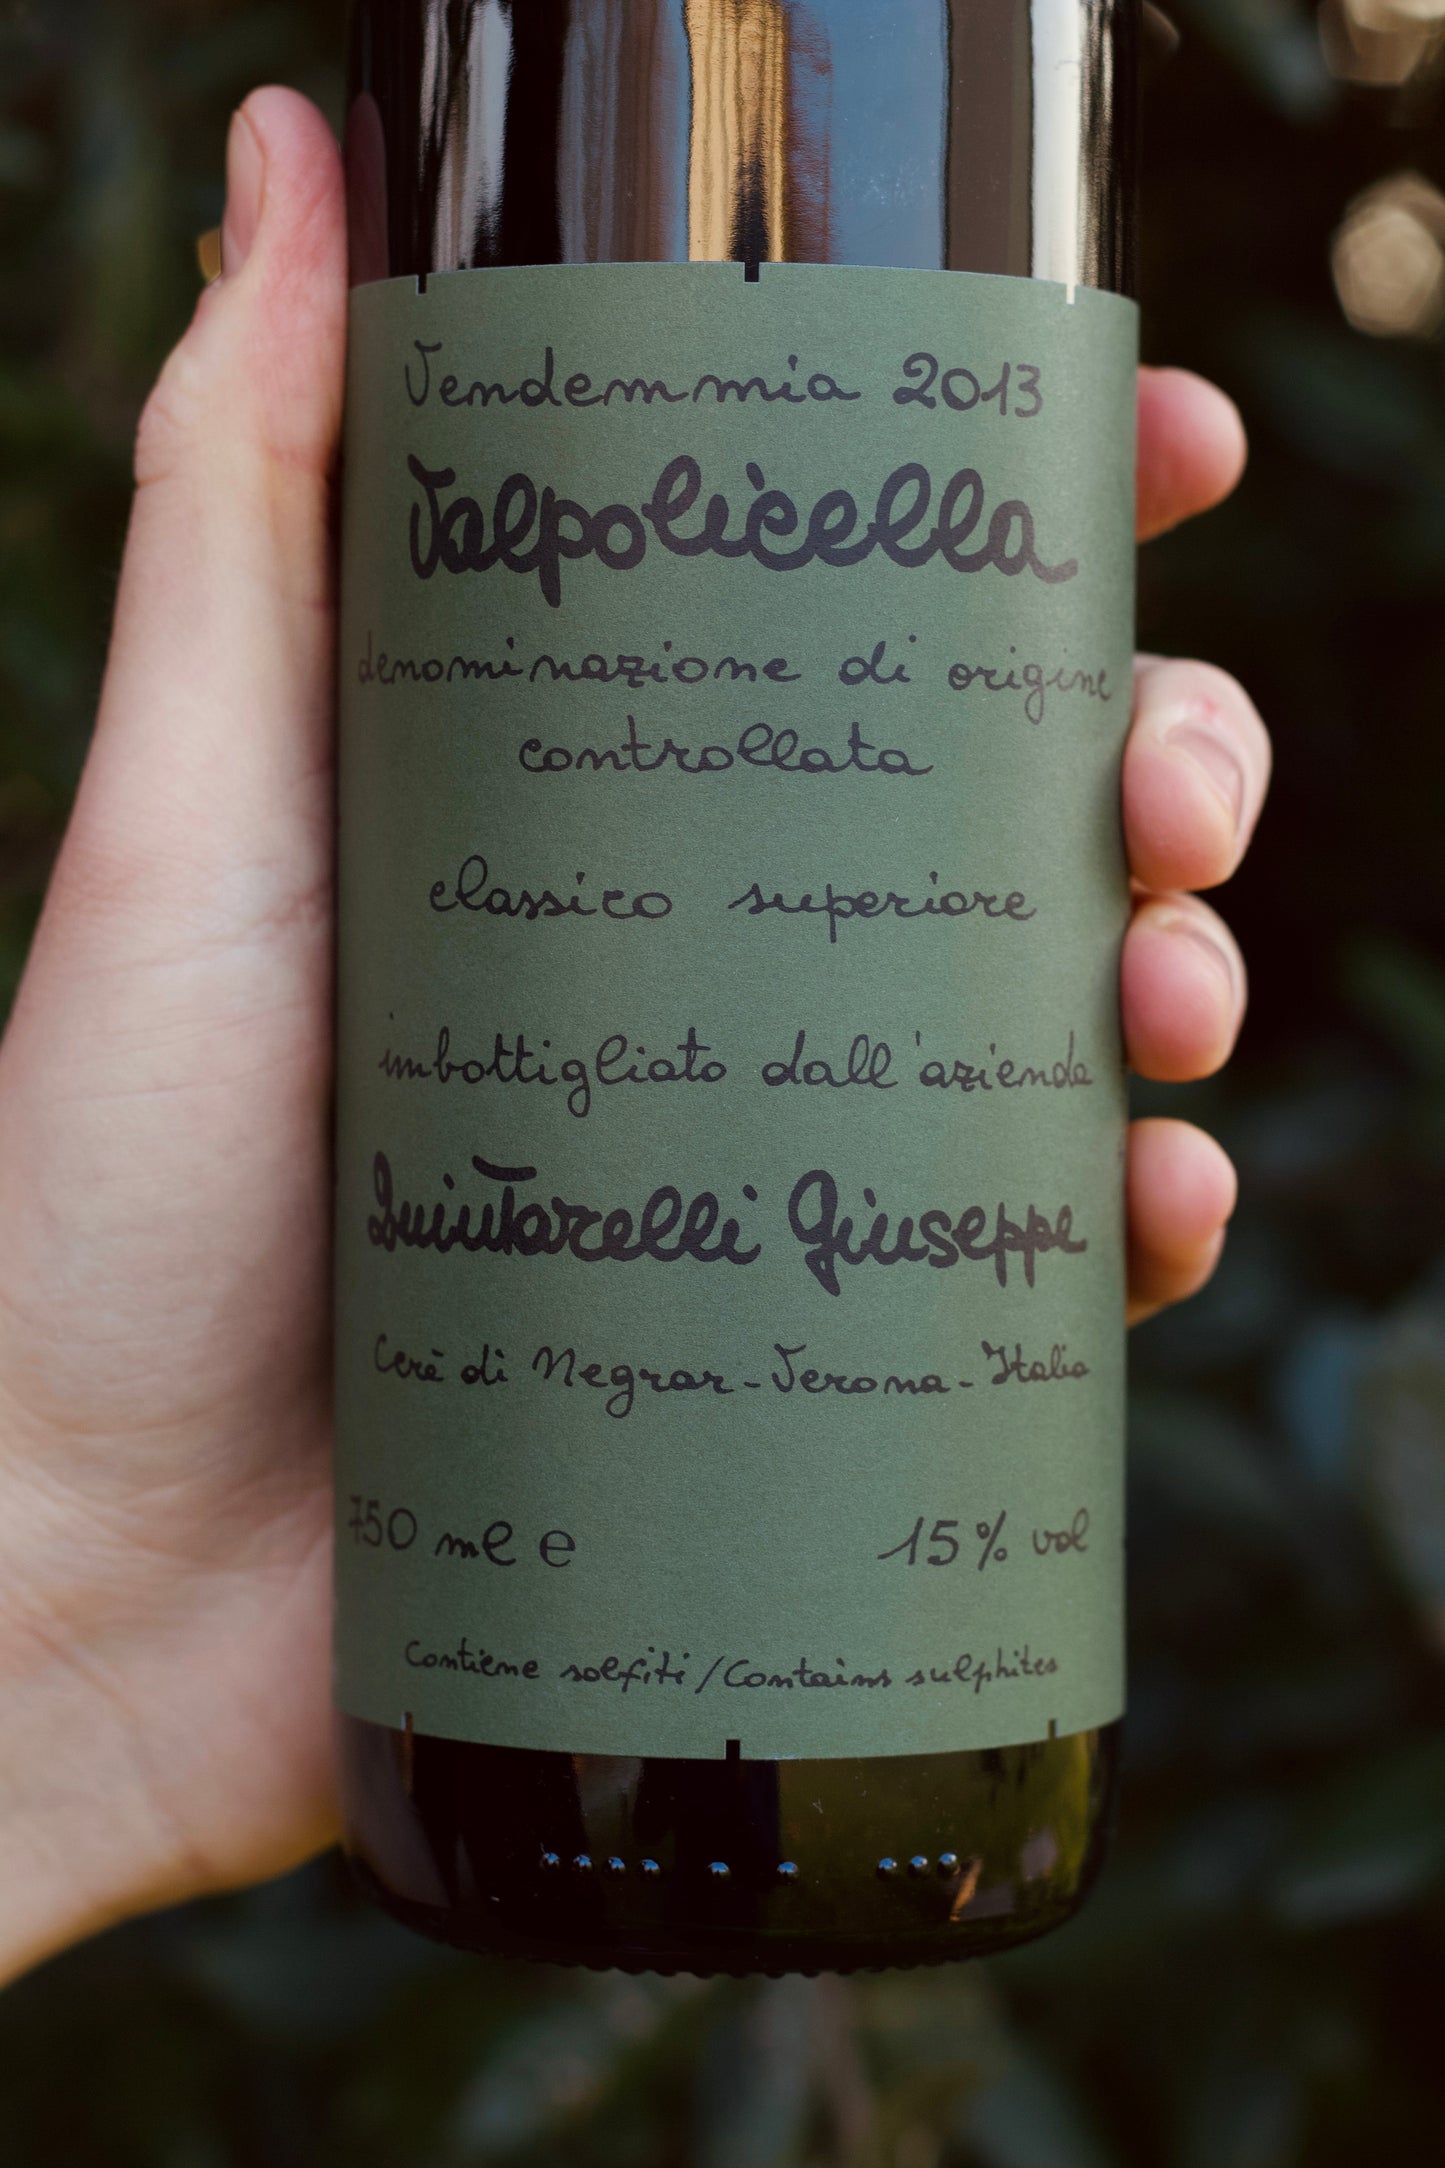 Vendemmia 2013
Valpolicella
denominazione di origine
controllata
classico superiore
imbottigliato dall'azienda
Quintarelli Giuseppe
Cerè di Negrar - Verona - Italia
750 ml e 15% vol
Contiene solfiti / Contains sulphites